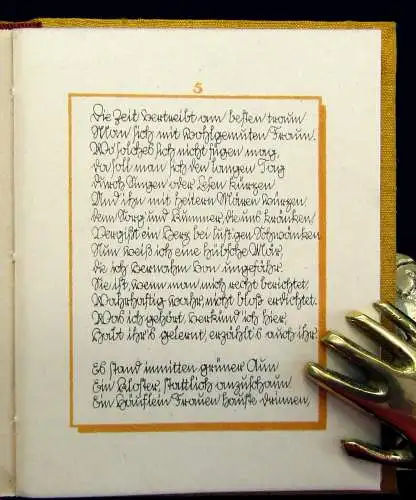 5
Die Zeit vertreibt am besten traun
Man sich mit wohlgemuten Fraun.
Wo solches sich nicht fügen mag,
da soll man sich den langen Tag
durch Singen oder Lesen kürzen
Und ihn mit heitern Mären würzen,
denn Sorg und Kummer, die uns kränken
Vergißt ein Herz bei lustigen Schwänken
Nun weiß ich eine hübsche Mär,
die ich vernahm von ungefähr.
Sie ist, wenn man mich recht berichtet,
Wahrhaftig wahr, nicht bloß erdichtet.
Was ich gehört, verkünd ich hier,
Habt ihr's gelernt, erzählt's auch ihr.
Es stand inmitten grüner Aun
Ein Kloster, stattlich anzuschaun
Ein Häuflein Frauen hauste drinnen,